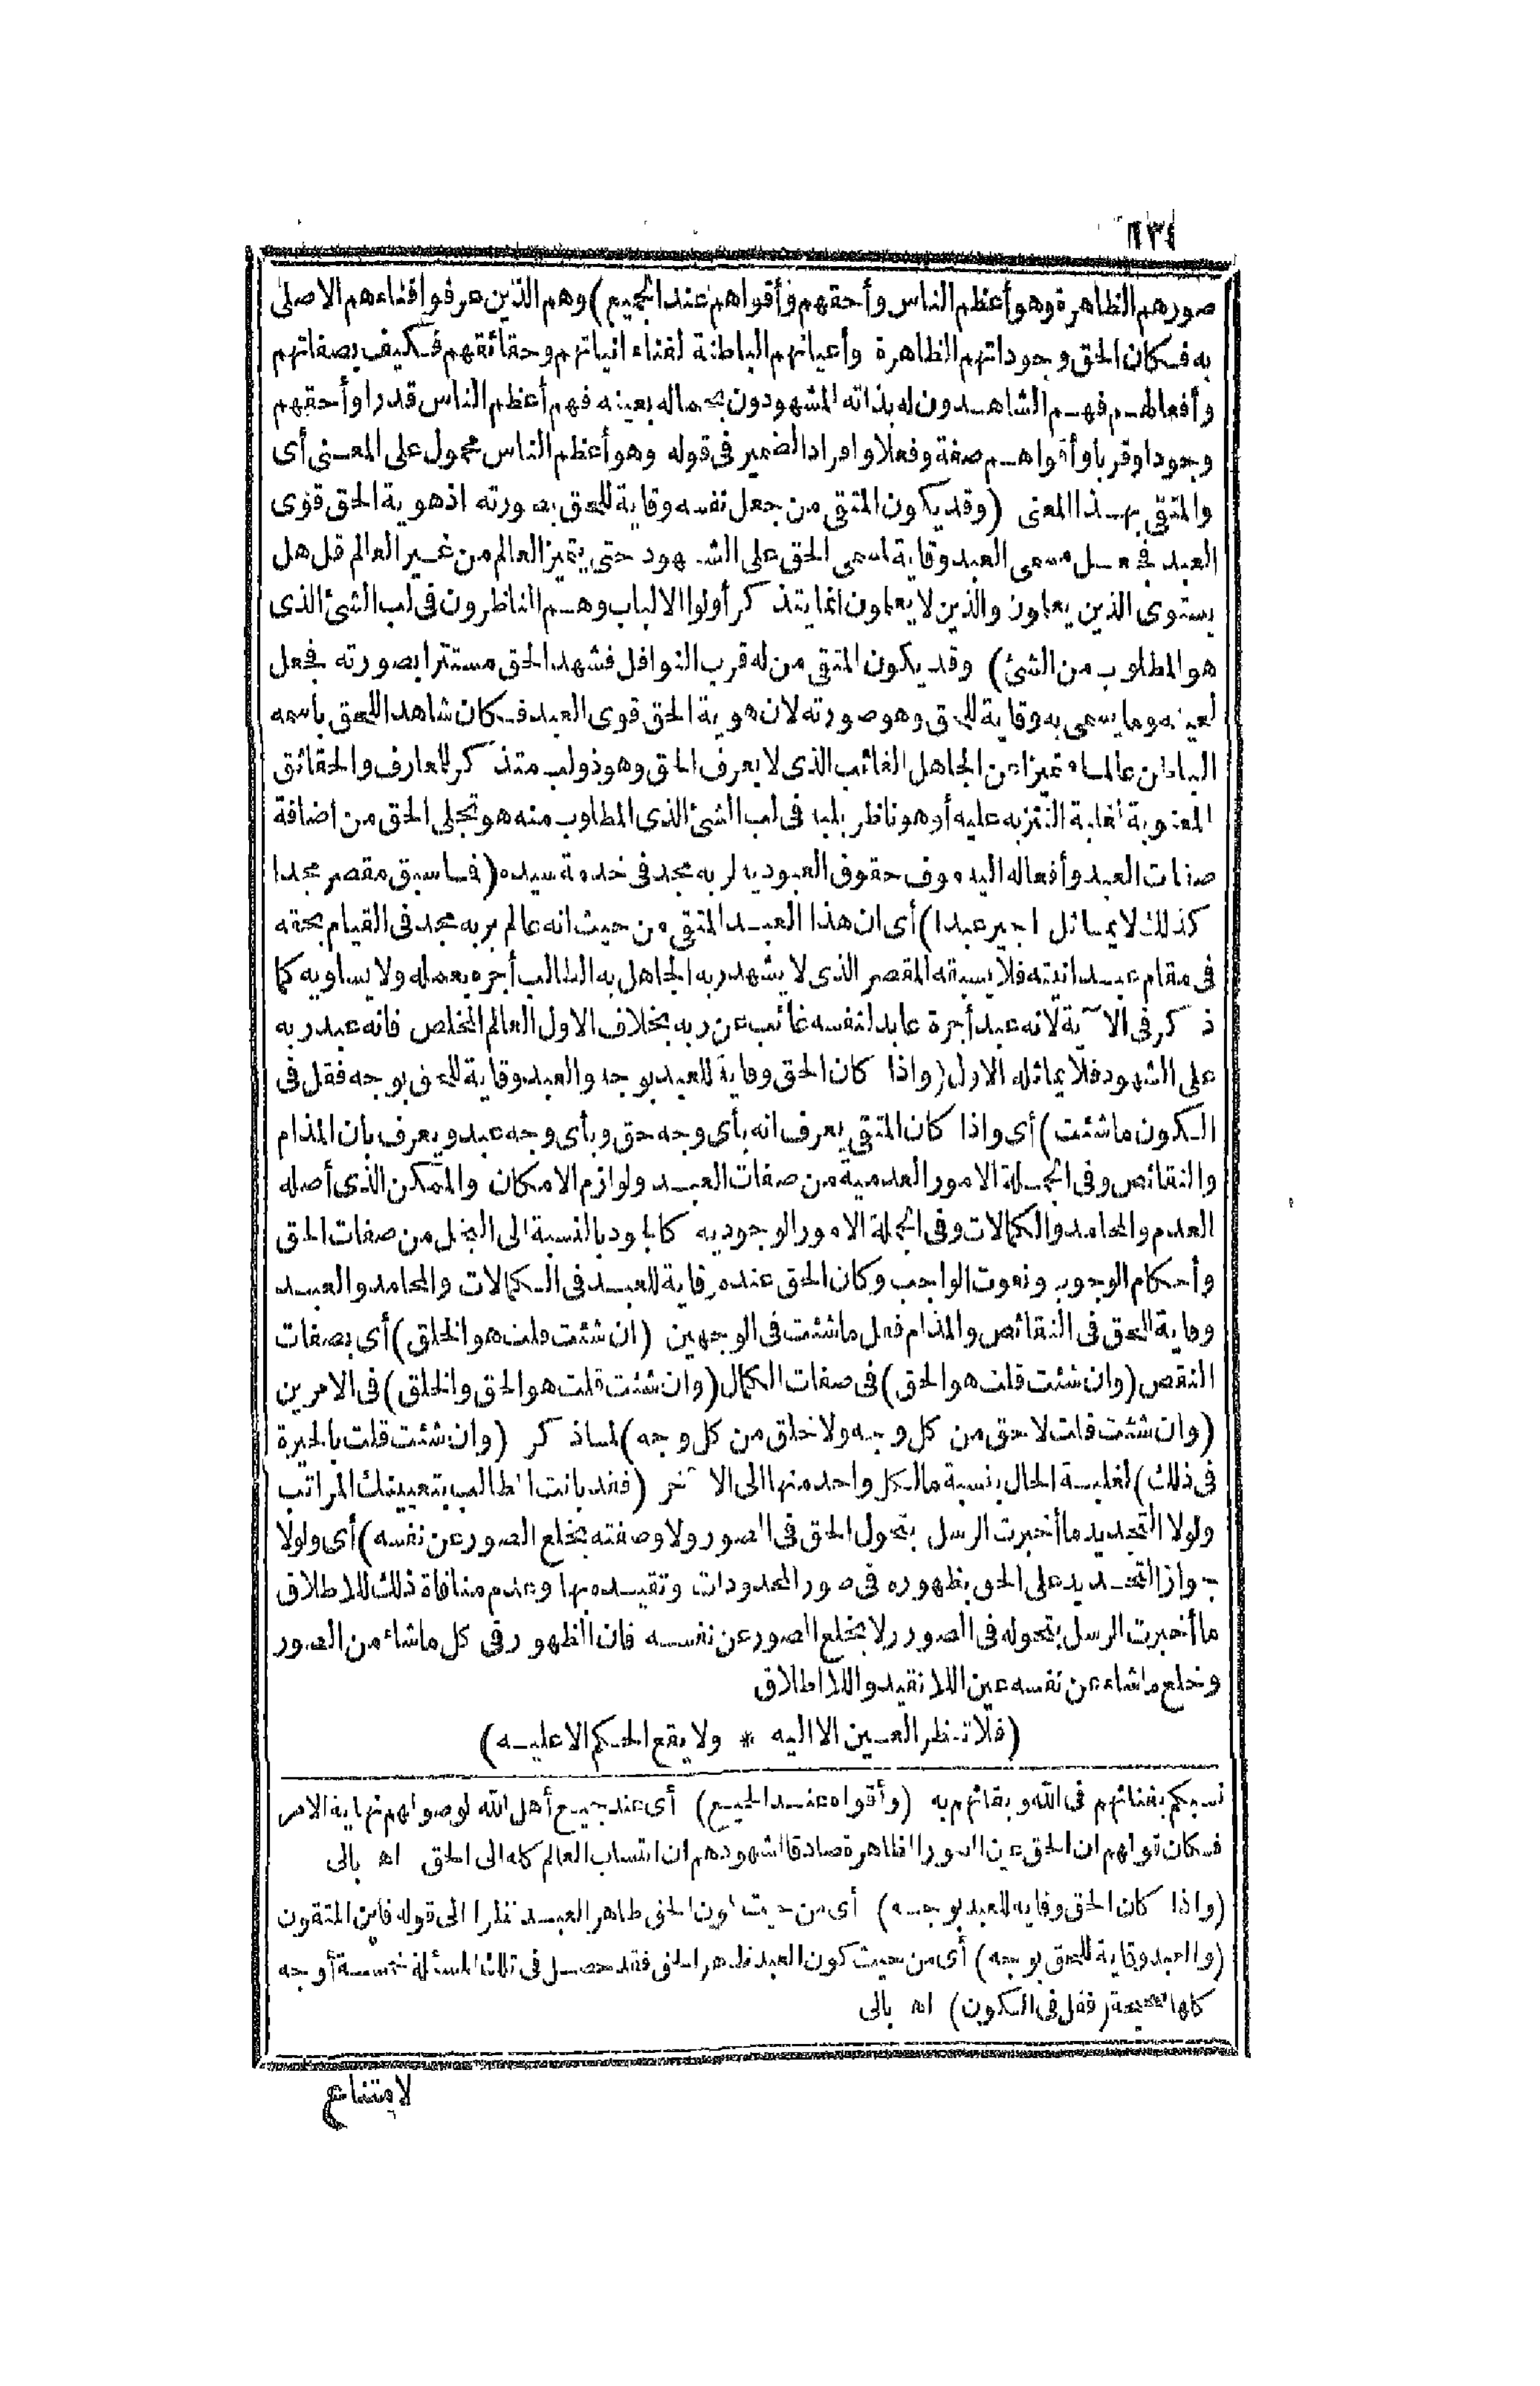 ١٣٤
صورهم الظاهرة وهو أعظم الناس وأحقهم وأقواهم عند الجميع) وهم الذين عرفوا فناءهم الاصلى
به فكان الحق وجوداتهم الظاهرة وأعيانهم الباطنة لفناء انياتهم وحقائقهم فكيف بصفاتهم
وأفعالهم فهم الشاهدون له بذاته المشهودون بجماله بعينه فهم أعظم الناس قدرا وأحقهم
وجودا وقربا وأقواهم صفة وفعلا وافراد الضمير فى قوله وهو أعظم الناس محمول على المعنى أى
والمتقى بهذا المعنى (وقد يكون المتقى من جعل نفسه وقاية للحق بصورته اذ هوية الحق قوى
العبد فجعل مسمى العبد وقاية لمسمى الحق على الشهود حتى يتميز العالم من غير العالم قل هل
يستوى الذين يعلمون والذين لا يعلمون انما يتذكر أولوا الالباب وهم الناظرون فى لب الشئ الذى
هو المطلوب من الشئ) وقد يكون المتقى من له قرب النوافل فشهد الحق مستترا بصورته فجعل
لعينه وما يسمى به وقاية للحق وهو صورته لان هوية الحق قوى العبد فكان شاهدا للحق باسمه
الباطن عالما متميزا عن الجاهل الغائب الذى لا يعرف الحق وهو ذو لب متذكر للعارف والحقائق
المعنوية لغلبة التنزيه عليه أو هو ناظر بلبه فى لب الشئ الذى المطلوب منه هو تجلى الحق من اضافة
صفات العبد وأفعاله اليه موف حقوق العبودية لربه مجد فى خدمة سيده (فما سبق مقصر مجدا
كذلك لا يماثل اجير عبدا) أى ان هذا العبد المتقى من حيث انه عالم بربه مجد فى القيام بحقه
فى مقام عبدانيته فلا يسبقه المقصر الذى لا يشهد ربه الجاهل به الطالب أجره بعمله ولا يساويه كما
ذكر فى الآية لانه عبد أجرة عابد لنفسه غائب عن ربه بخلاف الاول العالم المخلص فانه عبد ربه
على الشهود فلا يماثله الاول (واذا كان الحق وقاية للعبد بوجه والعبد وقاية للحق بوجه فقل فى
الكون ما شئت) أى واذا كان المتقى يعرف انه بأى وجه حق وبأى وجه عبد ويعرف بان المذام
والنقائص وفى الجملة الامور العدمية من صفات العبد ولوازم الامكان والممكن الذى أصله
العدم والمحامد والكمالات وفى الجملة الامور الوجودية كالجود بالنسبة الى البخل من صفات الحق
وأحكام الوجوب ونعوت الواجب وكان الحق عنده وقاية للعبد فى الكمالات والمحامد والعبد
وقاية للحق فى النقائص والمذام فعل ما شئت فى الوجهين (ان شئت قلت هو الخلق) أى بصفات
النقص (وان شئت قلت هو الحق) فى صفات الكمال (وان شئت قلت هو الحق والخلق) فى الامرين
(وان شئت قلت لا حق من كل وجه ولا خلق من كل وجه) لما ذكر (وان شئت قلت بالحيرة
فى ذلك) لغلبة الحال بنسبة ما لكل واحد منها الى الآخر (فقد بانت المطالب بتعيينك المراتب
ولولا التحديد ما أخبرت الرسل بتحول الحق فى الصور ولا وصفته بخلع الصور عن نفسه) أى ولولا
جواز التحديد على الحق بظهوره فى صور المحدودات وتقيده بها وعدم منافاة ذلك للاطلاق
ما أخبرت الرسل بتحوله فى الصور ولا بخلع الصور عن نفسه فان الظهور فى كل ما شاء من الصور
وخلع ما شاء عن نفسه عين اللاتقيد واللااطلاق
(فلا تنظر العين الا اليه * ولا يقع الحكم الا عليه)
نسبكم بفنائهم فى الله وبقائهم به (وأقواه عند الجميع) أى عند جميع أهل الله لوصولهم نهاية الامر
فكان قولهم ان الحق عين الصور الظاهرة صادقا لشهودهم ان انتساب العالم كله الى الحق اه بالى
(واذا كان الحق وقاية للعبد بوجه) أى من حيث كون الحق ظاهر العبد نظرا الى قوله فأين المتقون
(والعبد وقاية للحق بوجه) أى من حيث كون العبد ظاهر الحق فقد حصل فى تلك المسألة خمسة أوجه
كلها صحيحة (فقل فى الكون) اه بالى
لامتناع